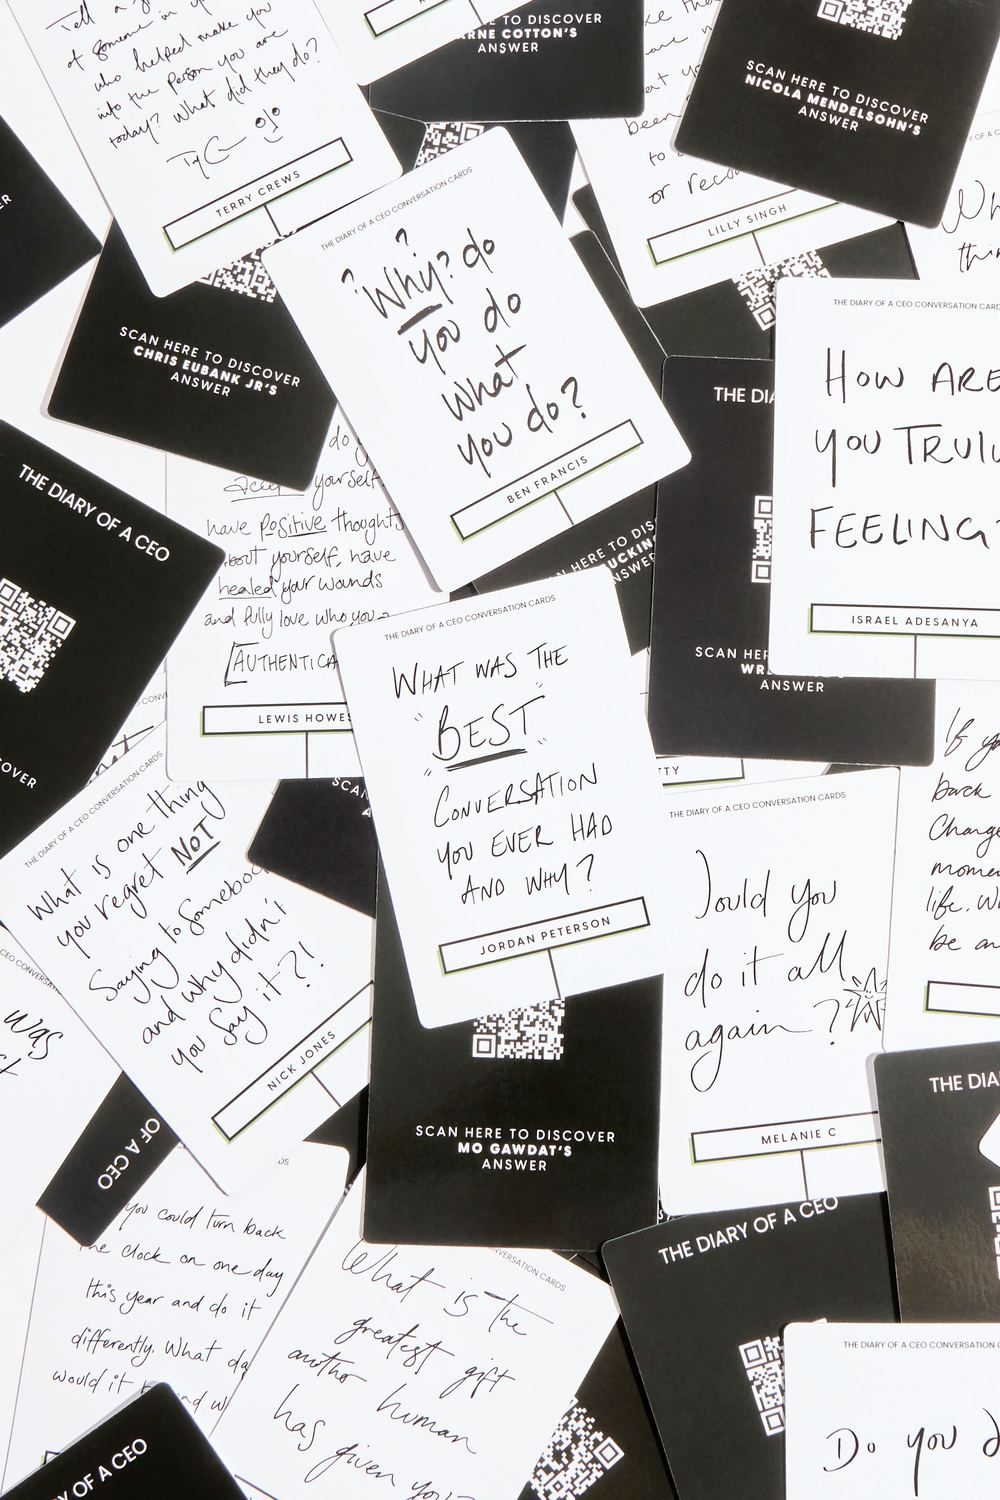 Tell a
of someone in
who helped make you
into the person you are
today? What did they do?
TERRY CREWS
ARNE COTTON'S
ANSWER
SCAN HERE TO DISCOVER
NICOLA MENDELSOHN'S
ANSWER
been
to
or
LILLY SINGH
SCAN HERE TO DISCOVER
CHRIS EUBANK JR'S
ANSWER
THE DIARY OF A CEO CONVERSATION CARDS
? "Why?" do
you do
what
you do?
BEN FRANCIS
THE DIARY OF A CEO CONVERSATION CARD
HOW ARE
YOU TRULY
FEELING?
ISRAEL ADESANYA
THE DIARY OF A CEO
THE DIA
SCAN HERE
ANSWER
do
accept yourself,
have positive thoughts
about yourself, have
healed your wounds
and fully love who you
AUTHENTICA
LEWIS HOWES
THE DIARY OF A CEO CONVERSATION CARDS
WHAT WAS THE
"BEST"
"CONVERSATION
YOU EVER HAD
AND WHY?
JORDAN PETERSON
THE DIARY OF A CEO CONVERSATION CARDS
What is one thing
you regret NOT
Saying to Somebod
and why didn't
you Say it?!
NICK JONES
THE DIARY OF A CEO CONVERSATION CARDS
Would you
do it all
again?
MELANIE C
If you
back
Change
mome
life. W
be an
was
SCAN HERE TO DISCOVER
MO GAWDAT'S
ANSWER
OF A CEO
you could turn back
the clock on one day
this year and do it
differently. What da
would it
THE DIA
THE DIARY OF A CEO
CONVERSATION CARDS
What is the
greatest gift
another human
has given you?
THE DIARY OF A CEO CONVERSATION C
Do you d
Y OF A CEO